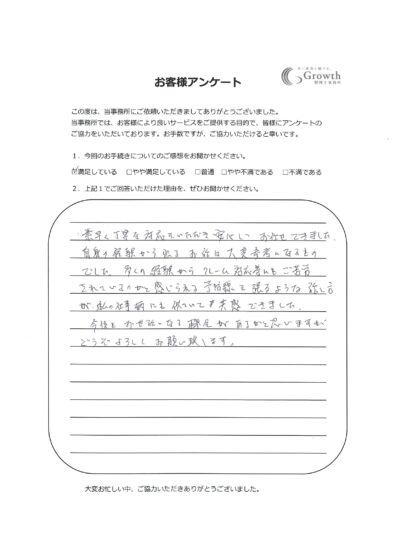 Growth
お客様アンケート
この度は、当事務所にご依頼いただきましてありがとうございました。
当事務所では、お客様により良いサービスをご提供する目的で、皆様にアンケートの
ご協力をいただいております。お手数ですが、ご協力いただけると幸いです。
1．今回のお手続きについてのご感想をお聞かせください。
☑満足している □やや満足している □普通 □やや不満である □不満である
2．上記1でご回答いただけた理由を、ぜひお聞かせください。
素早く丁寧な対応をいただき安心し お任せできました
自身の経験から出る お話は大変参考になるもの
でした. 多くの経験からクレーム対応等もご苦労
されているのかと感じられる予防線を張るような
が 私の仕事柄にも似ていて 共感 できました.
今後も お世話になる機会が有るかと思いますが
どうぞよろしく お願い致します。
大変お忙しい中、ご協力いただきありがとうございました。